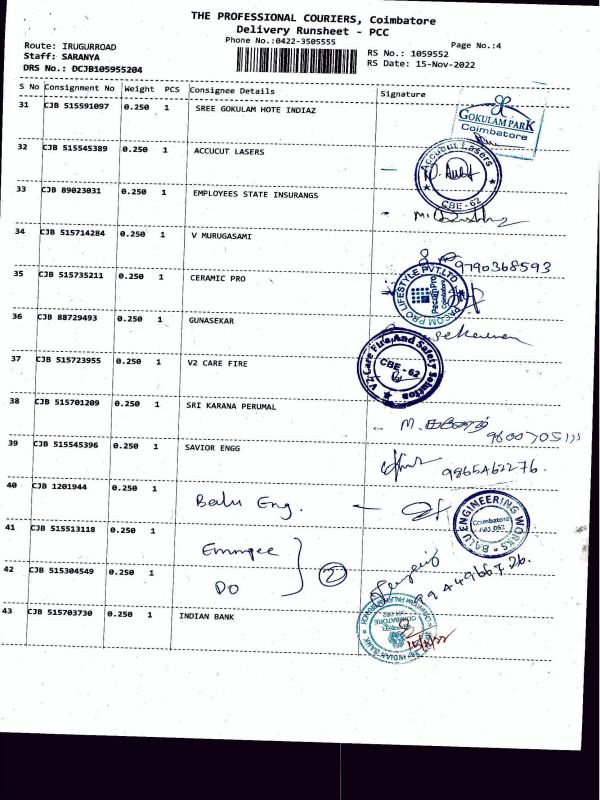 THE PROFESSIONAL COURIERS, Coimbatore
Delivery Runsheet - PCC
Phone No.:0422-3505555
Page No.:4
Route: IRUGURROAD
RS No.: 1059552
Staff: SARANYA
RS Date: 15-Nov-2022
DRS No.: DCJB105955204
S No Consignment No Weight PCS Consignee Details Signature
31 CJB 515591097 0.250 1 SREE GOKULAM HOTE INDIAZ
GOKULAM PARK
Coimbatore
32 CJB 515545389 0.250 1 ACCUCUT LASERS
Accucut Lasers
CBE - 62
33 CJB 89023031 0.250 1 EMPLOYEES STATE INSURANGS
34 CJB 515714284 0.250 1 V MURUGASAMI
9790368593
35 CJB 515735211 0.250 1 CERAMIC PRO
PRECOM PRO LIFESTYLE PVT.LTD
Coimbatore
36 CJB 88729493 0.250 1 GUNASEKAR
37 CJB 515723955 0.250 1 V2 CARE FIRE
V2 Care Fire And Safety Solution
CBE - 62
38 CJB 515701209 0.250 1 SRI KARANA PERUMAL
39 CJB 515545396 0.250 1 SAVIOR ENGG
9865462276.
40 CJB 1201944 0.250 1 Balu Eng.
BALU ENGINEERING WORKS
Coimbatore
41 CJB 515513118 0.250 1 Emmgee
42 CJB 515304549 0.250 1 DO
2
43 CJB 515703730 0.250 1 INDIAN BANK
INDIAN BANK
COIMBATORE
15/11/22